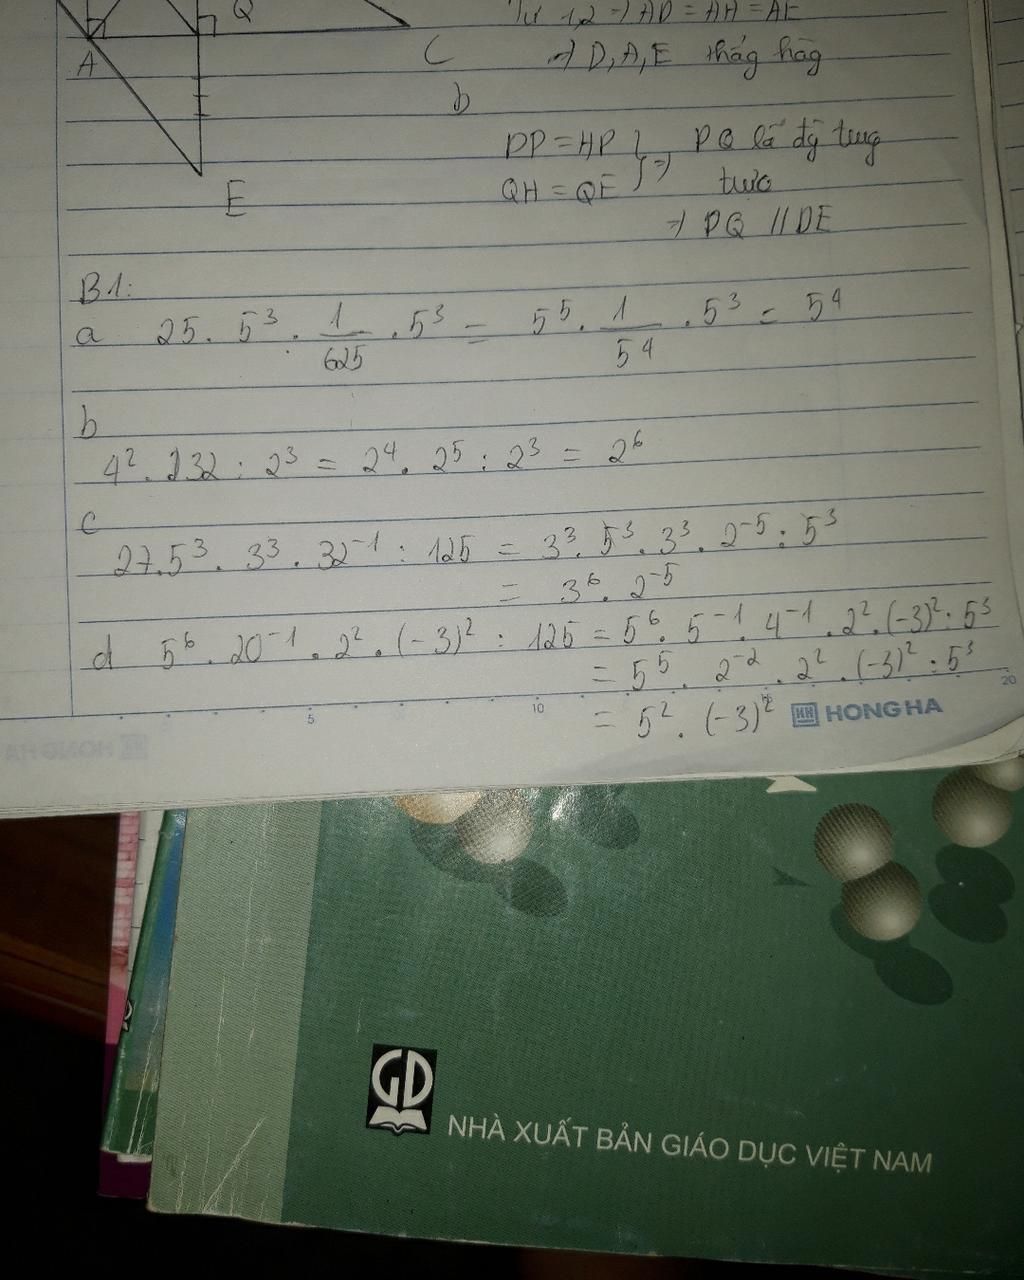 Q
Từ 1,2 => AD = AH = AE
A
C
=> D, A, E thág hàg
b
DP = HP } => PQ là đg tung
QH = QE
trực
E
=> PQ // DE
B1:
a 25 . 5³ . 1/625 . 5³ = 5⁵ . 1/5⁴ . 5³ = 5⁴
b
4² . 32 : 2³ = 2⁴ . 2⁵ : 2³ = 2⁶
c
27 . 5³ . 3³ . 32⁻¹ : 125 = 3³ . 5³ . 3³ . 2⁻⁵ : 5³
= 3⁶ . 2⁻⁵
d 5⁶ . 20⁻¹ . 2² . (-3)² : 125 = 5⁶ . 5⁻¹ . 4⁻¹ . 2² . (-3)² : 5³
= 5⁵ . 2⁻² . 2² . (-3)² : 5³
= 5² . (-3)²
5 10 15 20
HH HONG HA
GD
NHÀ XUẤT BẢN GIÁO DỤC VIỆT NAM